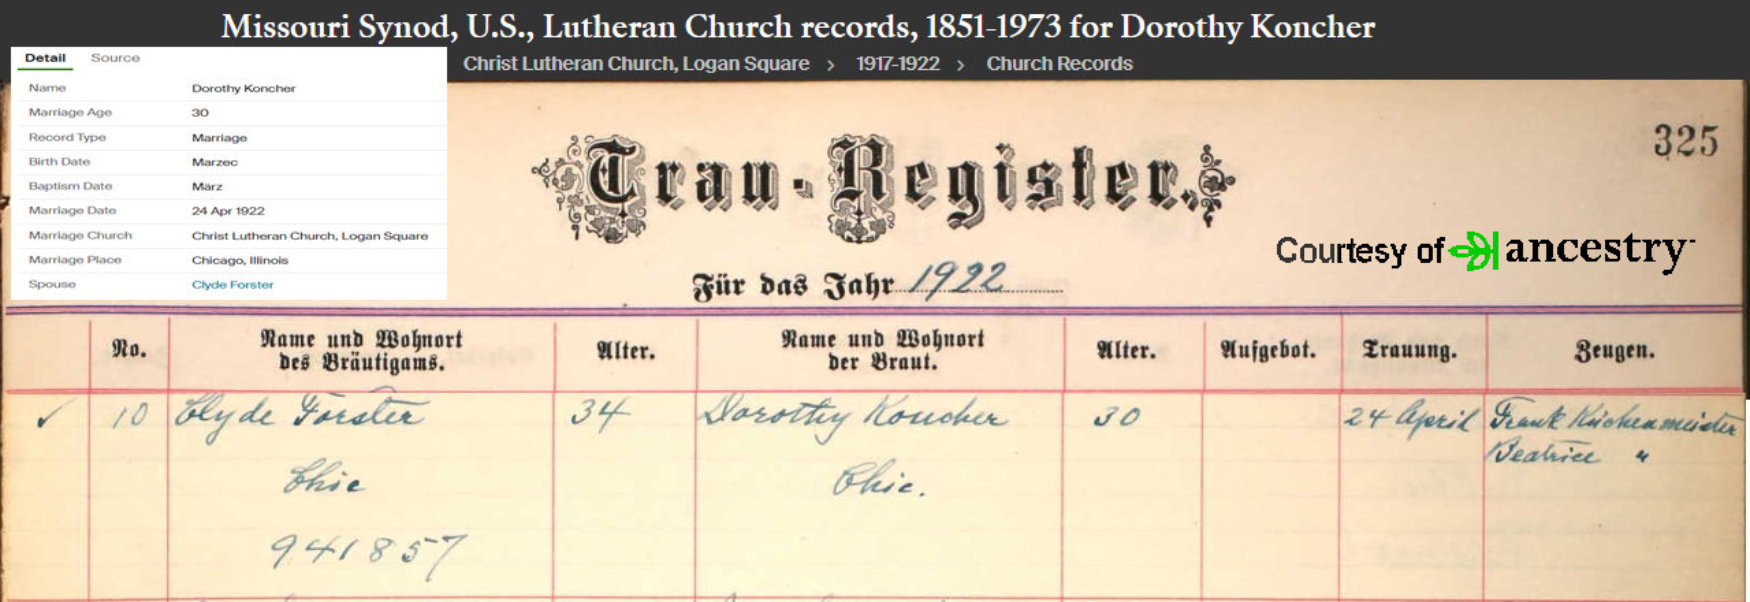 Missouri Synod, U.S., Lutheran Church records, 1851-1973 for Dorothy Koncher
Christ Lutheran Church, Logan Square > 1917-1922 > Church Records
Detail Source
Name Dorothy Koncher
Marriage Age 30
Record Type Marriage
Birth Date Marzec
Baptism Date März
Marriage Date 24 Apr 1922
Marriage Church Christ Lutheran Church, Logan Square
Marriage Place Chicago, Illinois
Spouse Clyde Forster
325
Trau-Register.
Courtesy of ancestry
Für das Jahr 1922
No. Name und Wohnort des Bräutigams. Alter. Name und Wohnort der Braut. Alter. Aufgebot. Trauung. Zeugen.
✓ 10 Clyde Forster 34 Dorothy Koncher 30 24 April Frank Küchenmeister
Beatrice "
Chic Chic.
941857